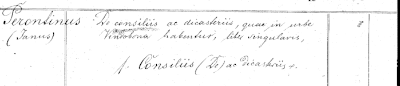 Perontinus De consiliis ac dicasteriis, quae in urbe 8
(Janus) Vindobona habentur, liber singularis,
f. Consiliis (De) ac dicasteriis.